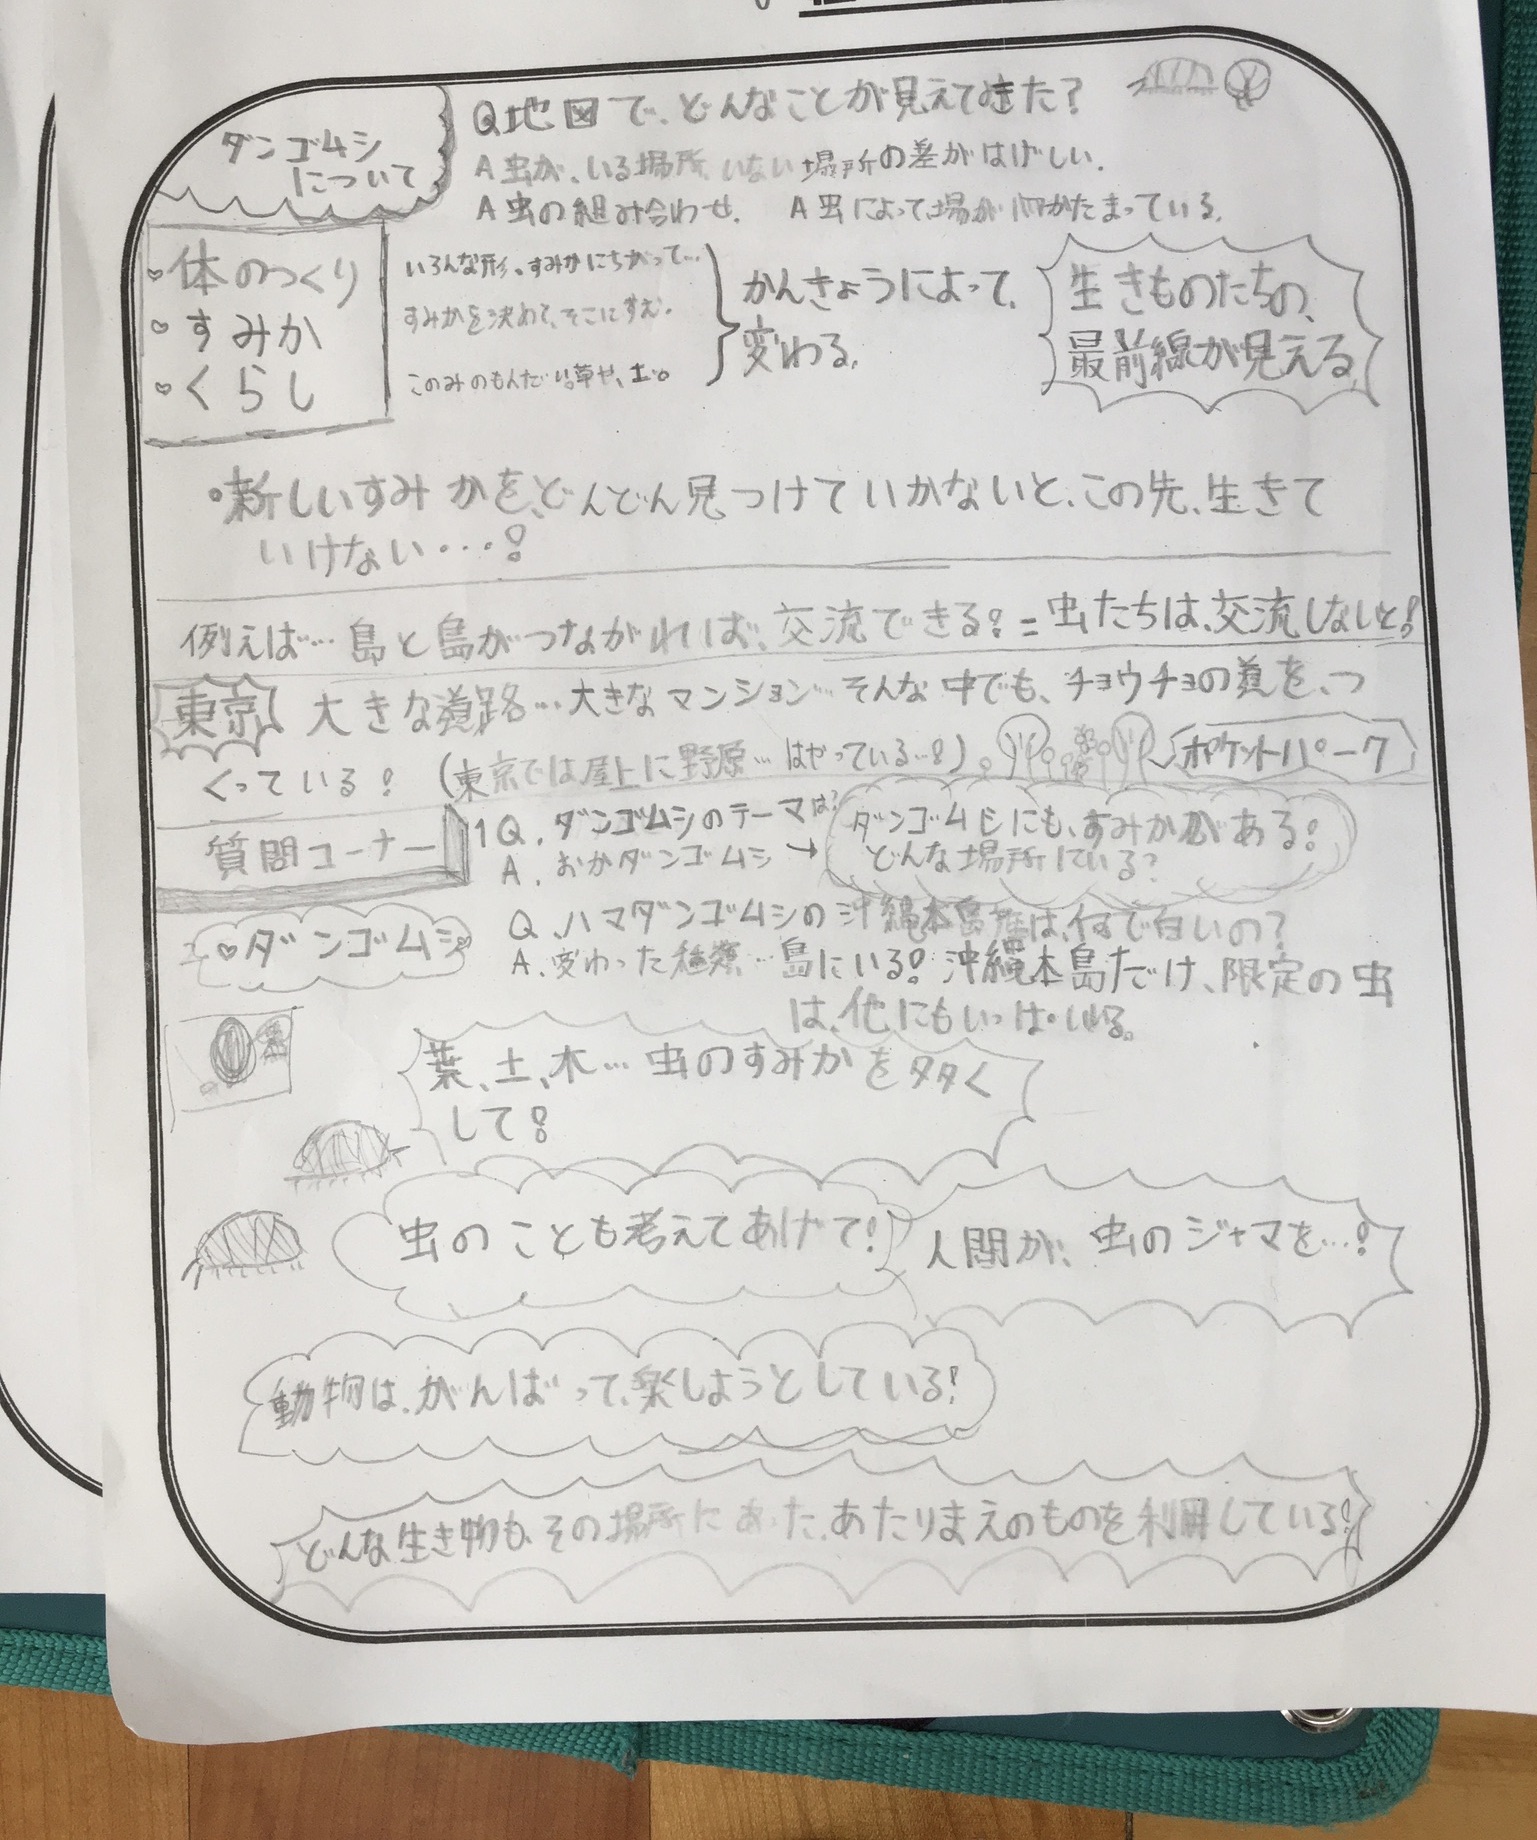 ダンゴムシ
について
Q地図で、どんなことが見えてきた?
A虫が、いる場所、いない場所の差がはげしい。
A虫の組み合わせ。 A虫によって場がかたまっている。
・体のつくり
・すみか
・くらし
いろんな形。すみかにちがって…
すみかを決めて、そこにすむ。
このみのもんだい。草や、土。
かんきょうによって、
変わる。
生きものたちの、
最前線が見える
・新しいすみかを、どんどん見つけていかないと、この先、生きて
いけない・・・!
例えば…島と島がつながれば、交流できる!=虫たちは、交流しないと!
東京 大きな道路…大きなマンション…そんな中でも、チョウチョの道を、つ
くっている! (東京では屋上に野原…はやっている…!) ポケットパーク
質問コーナー
1Q. ダンゴムシのテーマは?
A. おかダンゴムシ→
ダンゴムシにも、すみかがある!
どんな場所にいる?
♡ダンゴムシ♡
Q.ハマダンゴムシの沖縄本島産は、何で白いの?
A.変わった種類…島にいる!沖縄本島だけ、限定の虫
は、他にもいっぱいいる。
葉、土、木…虫のすみかを多く
して!
虫のことも考えてあげて!
人間が、虫のジャマを…!
動物は、がんばって、楽しようとしている!
どんな生き物も、その場所にあった、あたりまえのものを利用している!